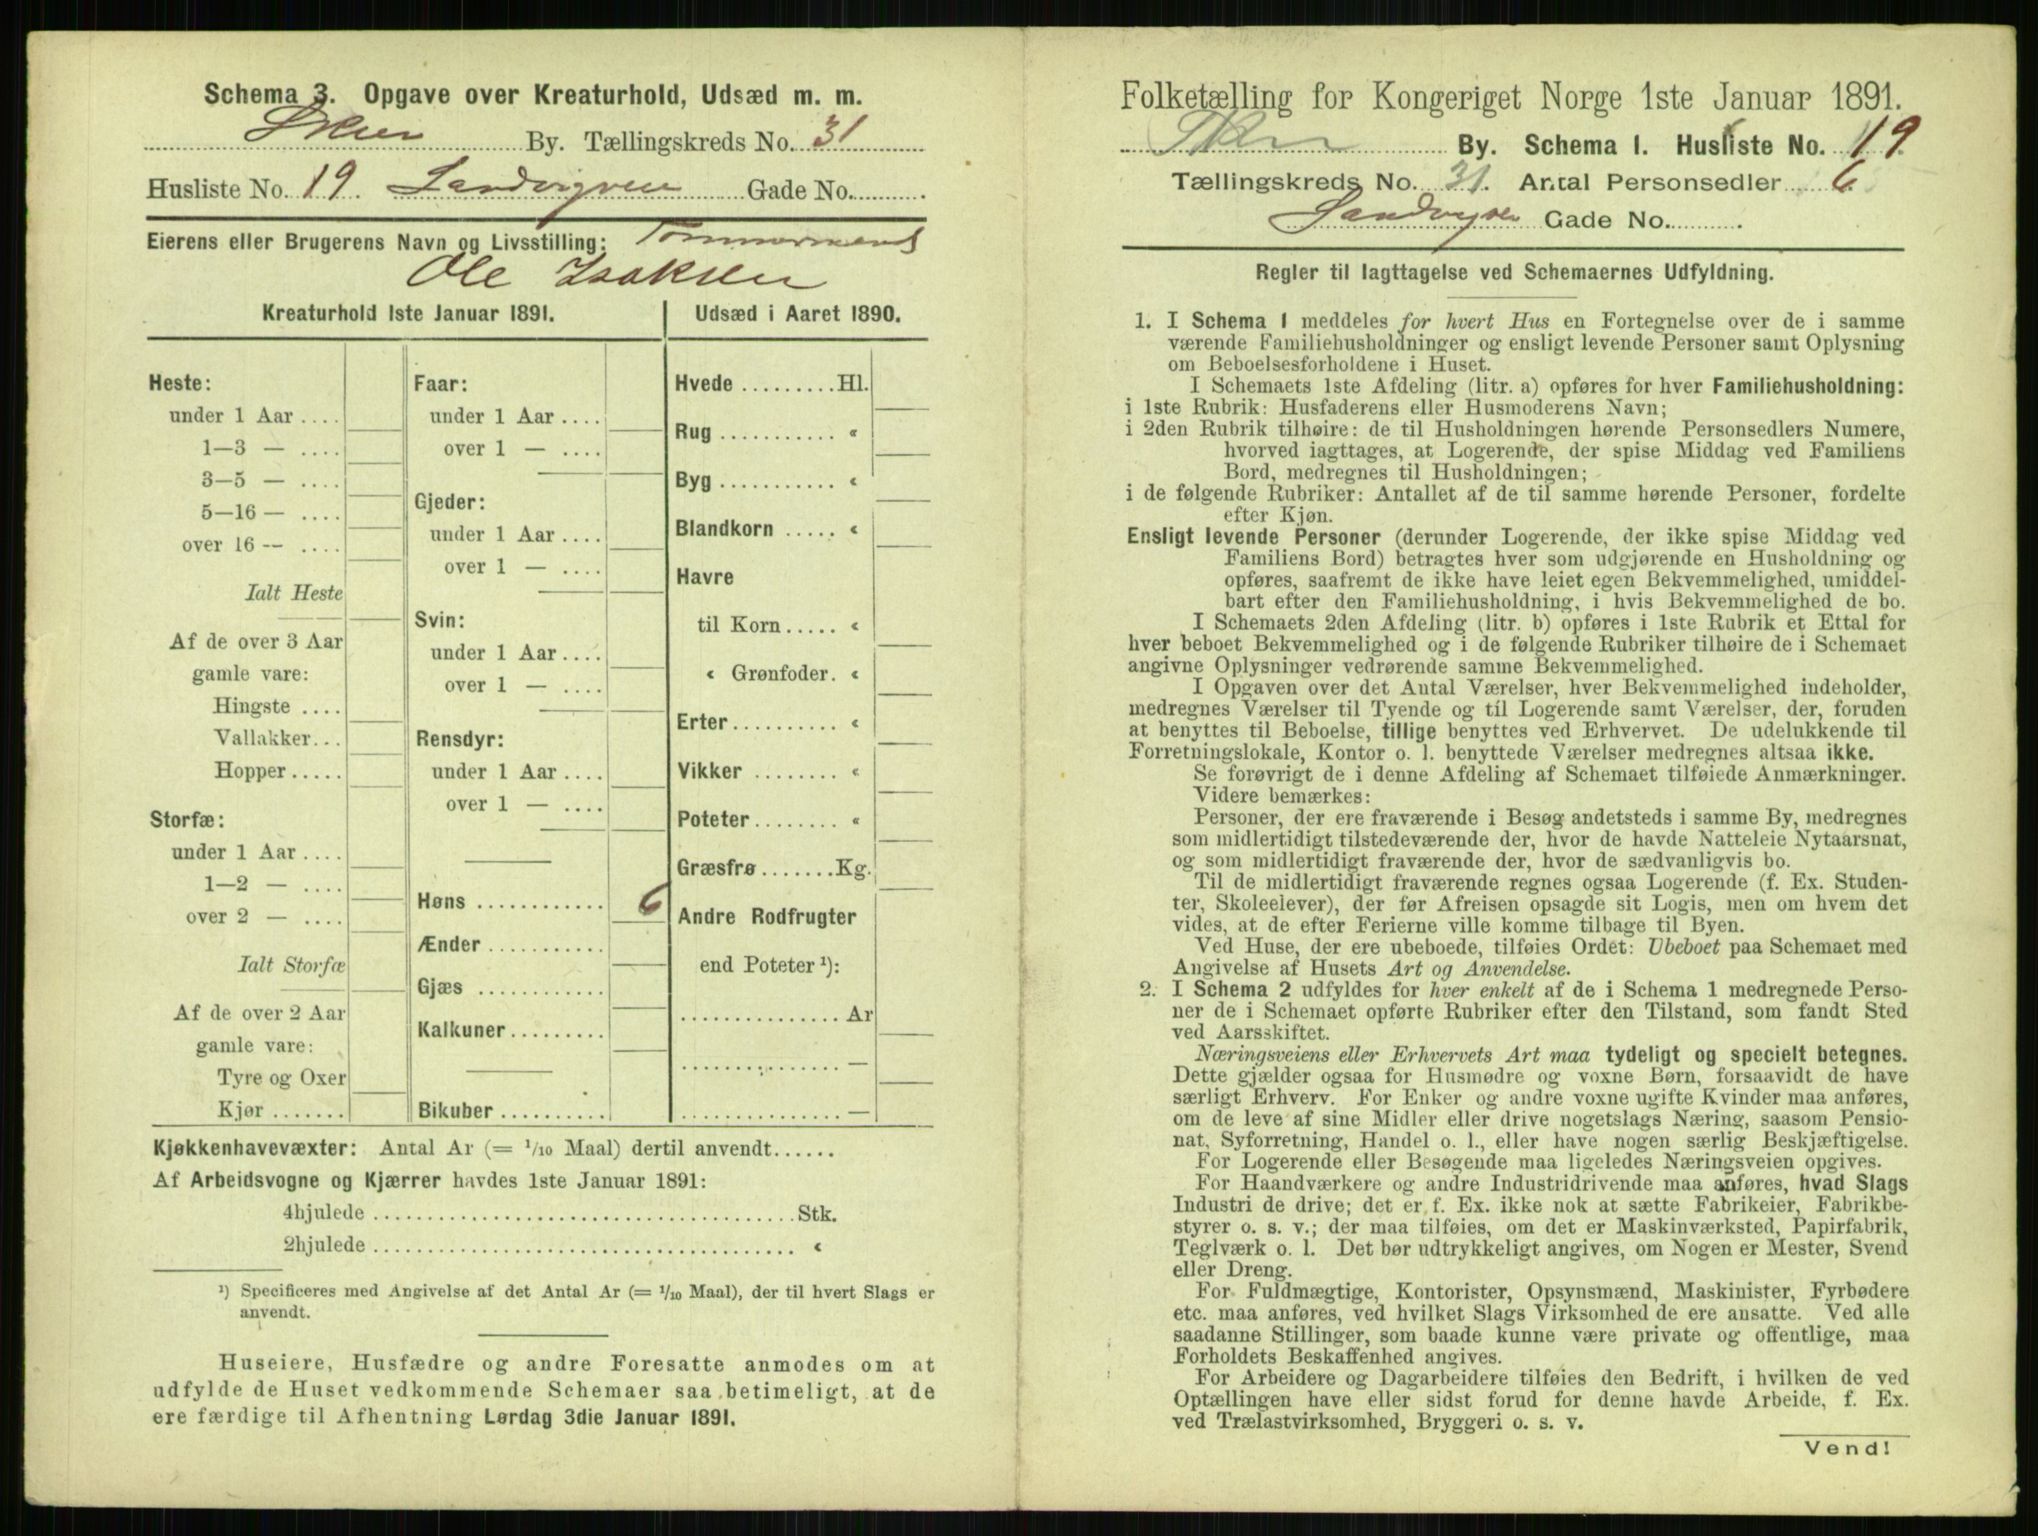 Schema 3. Opgave over Kreaturhold, Udsæd m. m.
Skien By. Tællingskreds No. 31
Husliste No. 19 Landvigveien Gade No.
Eierens eller Brugerens Navn og Livsstilling: Tømmermand
Ole Isaksen
Kreaturhold 1ste Januar 1891.
Heste:
under 1 Aar ....
1—3 — ....
3—5 — ....
5—16 — ....
over 16 — ....
Ialt Heste
Af de over 3 Aar
gamle vare:
Hingste ....
Vallakker...
Hopper.....
Storfæ:
under 1 Aar ....
1—2 — ....
over 2 — ....
Ialt Storfæ
Af de over 2 Aar
gamle vare:
Tyre og Oxer
Kjør .......
Faar:
under 1 Aar ....
over 1 — ....
Gjeder:
under 1 Aar ....
over 1 — ....
Svin:
under 1 Aar ....
over 1 — ....
Rensdyr:
under 1 Aar ....
over 1 — ....
Høns ............ 6
Ænder ...........
Gjæs ............
Kalkuner.........
Bikuber ..........
Udsæd i Aaret 1890.
Hvede .........Hl.
Rug ........... «
Byg ........... «
Blandkorn ..... «
Havre
til Korn..... «
« Grønfoder. «
Erter.......... «
Vikker ........ «
Poteter........ «
Græsfrø.......Kg.
Andre Rodfrugter
end Poteter ¹):
...............Ar
............... —
............... —
Kjøkkenhavevæxter: Antal Ar (= 1/10 Maal) dertil anvendt......
Af Arbeidsvogne og Kjærrer havdes 1ste Januar 1891:
4hjulede ........................................Stk.
2hjulede ........................................ «
¹) Specificeres med Angivelse af det Antal Ar (= 1/10 Maal), der til hvert Slags er
anvendt.
Huseiere, Husfædre og andre Foresatte anmodes om at
udfylde de Huset vedkommende Schemaer saa betimeligt, at de
ere færdige til Afhentning Lørdag 3die Januar 1891.
Folketælling for Kongeriget Norge 1ste Januar 1891.
Skien By. Schema 1. Husliste No. 19
Tællingskreds No. 31. Antal Personsedler 6
Gade No.
Regler til Iagttagelse ved Schemaernes Udfyldning.
1. I Schema 1 meddeles for hvert Hus en Fortegnelse over de i samme
værende Familiehusholdninger og ensligt levende Personer samt Oplysning
om Beboelsesforholdene i Huset.
I Schemaets 1ste Afdeling (litr. a) opføres for hver Familiehusholdning:
i 1ste Rubrik: Husfaderens eller Husmoderens Navn;
i 2den Rubrik tilhøire: de til Husholdningen hørende Personsedlers Numere,
hvorved iagttages, at Logerende, der spise Middag ved Familiens
Bord, medregnes til Husholdningen;
i de følgende Rubriker: Antallet af de til samme hørende Personer, fordelte
efter Kjøn.
Ensligt levende Personer (derunder Logerende, der ikke spise Middag ved
Familiens Bord) betragtes hver som udgjørende en Husholdning og
opføres, saafremt de ikke have leiet egen Bekvemmelighed, umiddel-
bart efter den Familiehusholdning, i hvis Bekvemmelighed de bo.
I Schemaets 2den Afdeling (litr. b) opføres i 1ste Rubrik et Ettal for
hver beboet Bekvemmelighed og i de følgende Rubriker tilhøire de i Schemaet
angivne Oplysninger vedrørende samme Bekvemmelighed.
I Opgaven over det Antal Værelser, hver Bekvemmelighed indeholder,
medregnes Værelser til Tyende og til Logerende samt Værelser, der, foruden
at benyttes til Beboelse, tillige benyttes ved Erhvervet. De udelukkende til
Forretningslokale, Kontor o. l. benyttede Værelser medregnes altsaa ikke.
Se forøvrigt de i denne Afdeling af Schemaet tilføiede Anmærkninger.
Videre bemærkes:
Personer, der ere fraværende i Besøg andetsteds i samme By, medregnes
som midlertidigt tilstedeværende der, hvor de havde Natteleie Nytaarsnat,
og som midlertidigt fraværende der, hvor de sædvanligvis bo.
Til de midlertidigt fraværende regnes ogsaa Logerende (f. Ex. Studen-
ter, Skoleelever), der før Afreisen opsagde sit Logis, men om hvem det
vides, at de efter Ferierne ville komme tilbage til Byen.
Ved Huse, der ere ubeboede, tilføies Ordet: Ubeboet paa Schemaet med
Angivelse af Husets Art og Anvendelse.
2. I Schema 2 udfyldes for hver enkelt af de i Schema 1 medregnede Perso-
ner de i Schemaet opførte Rubriker efter den Tilstand, som fandt Sted
ved Aarsskiftet.
Næringsveiens eller Erhvervets Art maa tydeligt og specielt betegnes.
Dette gjælder ogsaa for Husmødre og voxne Børn, forsaavidt de have
særligt Erhverv. For Enker og andre voxne ugifte Kvinder maa anføres,
om de leve af sine Midler eller drive nogetslags Næring, saasom Pensio-
nat, Syforretning, Handel o. l., eller have nogen særlig Beskjæftigelse.
For Logerende eller Besøgende maa ligeledes Næringsveien opgives.
For Haandværkere og andre Industridrivende maa anføres, hvad Slags
Industri de drive; det er f. Ex. ikke nok at sætte Fabrikeier, Fabrikbe-
styrer o. s. v.; der maa tilføies, om det er Maskinværksted, Papirfabrik,
Teglværk o. l. Det bør udtrykkeligt angives, om Nogen er Mester, Svend
eller Dreng.
For Fuldmægtige, Kontorister, Opsynsmænd, Maskinister, Fyrbødere
etc. maa anføres, ved hvilket Slags Virksomhed de ere ansatte. Ved alle
saadanne Stillinger, som baade kunne være private og offentlige, maa
Forholdets Beskaffenhed angives.
For Arbeidere og Dagarbeidere tilføies den Bedrift, i hvilken de ved
Optællingen have eller sidst forud for denne havde Arbeide, f. Ex.
ved Trælastvirksomhed, Bryggeri o. s. v.
Vend!